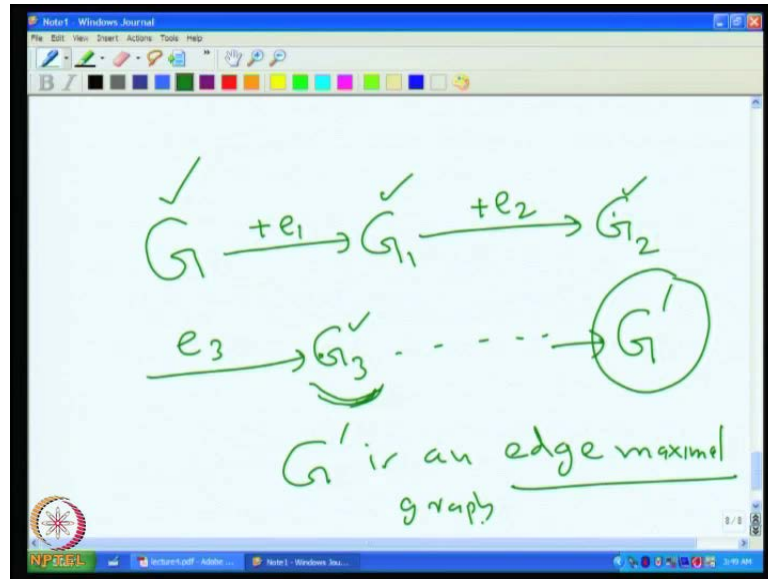 Note1 - Windows Journal
File Edit View Insert Actions Tools Help
B I
G +e1 G1 +e2 G2
e3 G3 - - - - - G'
G' is an edge maximal
graph
8/8
NPTEL lecture4.pdf - Adobe ... Note1 - Windows Jou... 3:49 AM